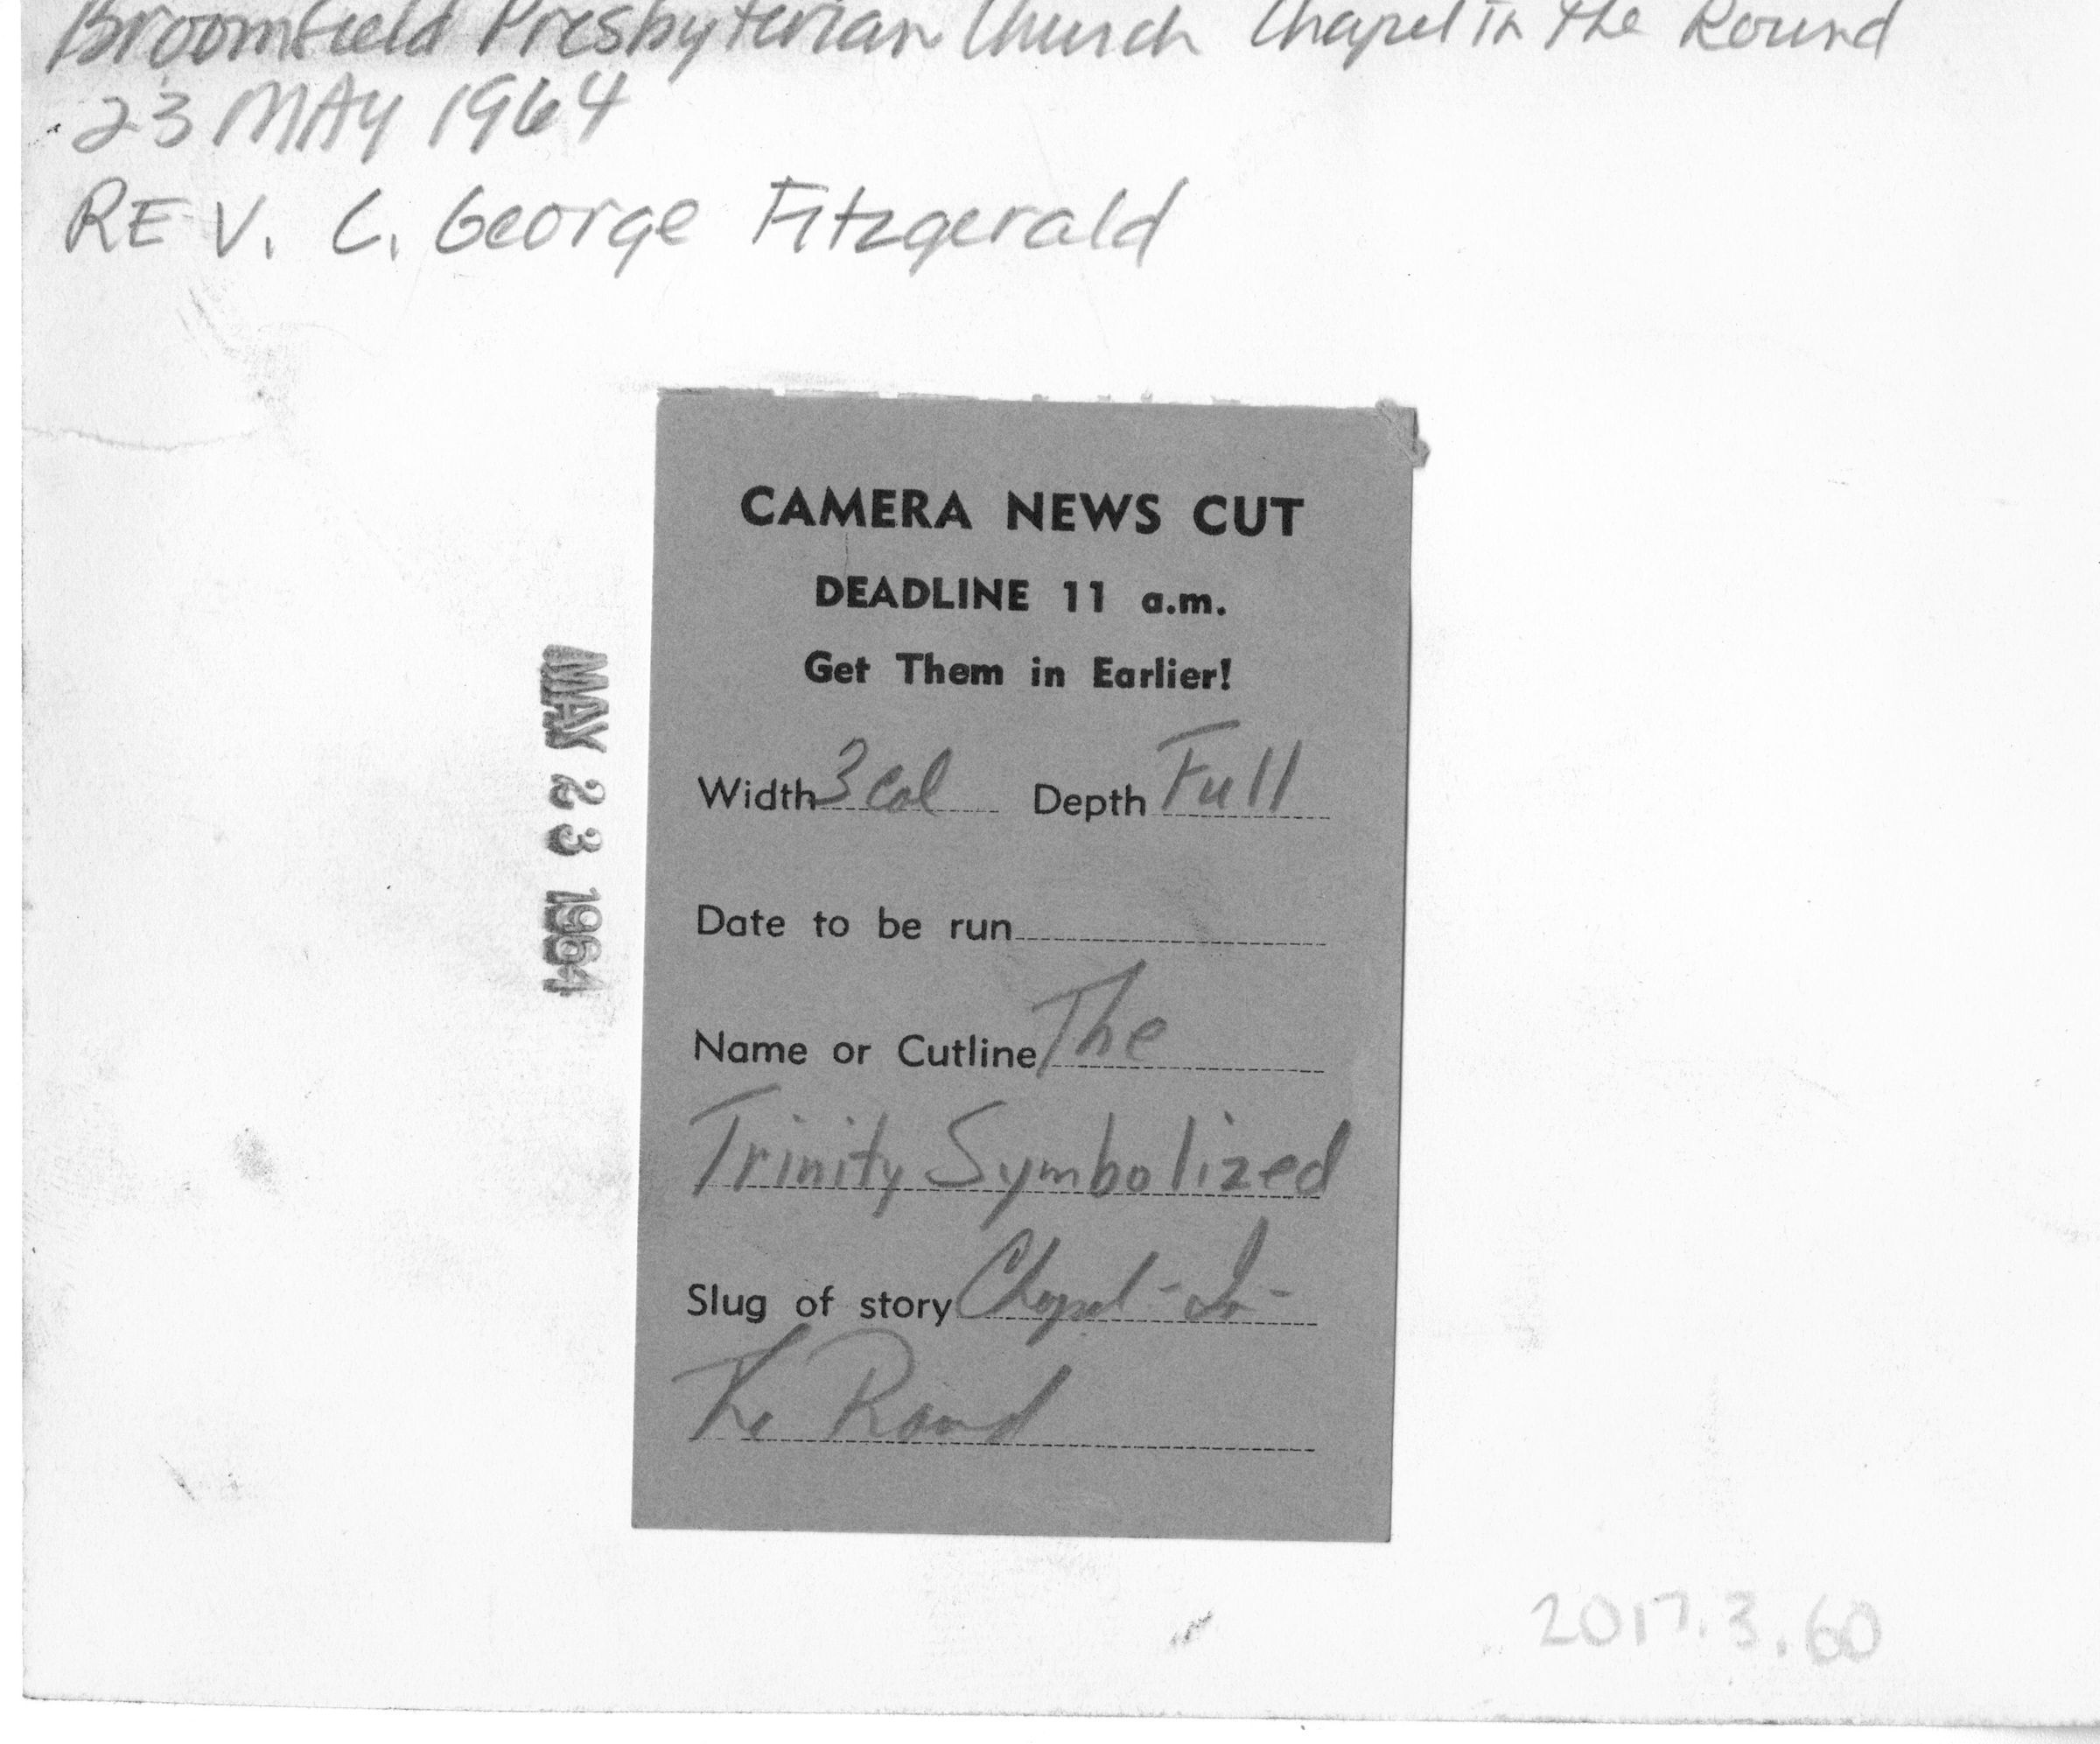 Broomfield Presbyterian Church Chapel in the Round
23 MAY 1964
REV. C. George Fitzgerald
CAMERA NEWS CUT
DEADLINE 11 a.m.
Get Them in Earlier!
Width 3 Col Depth Full
Date to be run
Name or Cutline The
Trinity Symbolized
Slug of story Chapel-In-
The Round
MAY 23 1964
2017.3.60